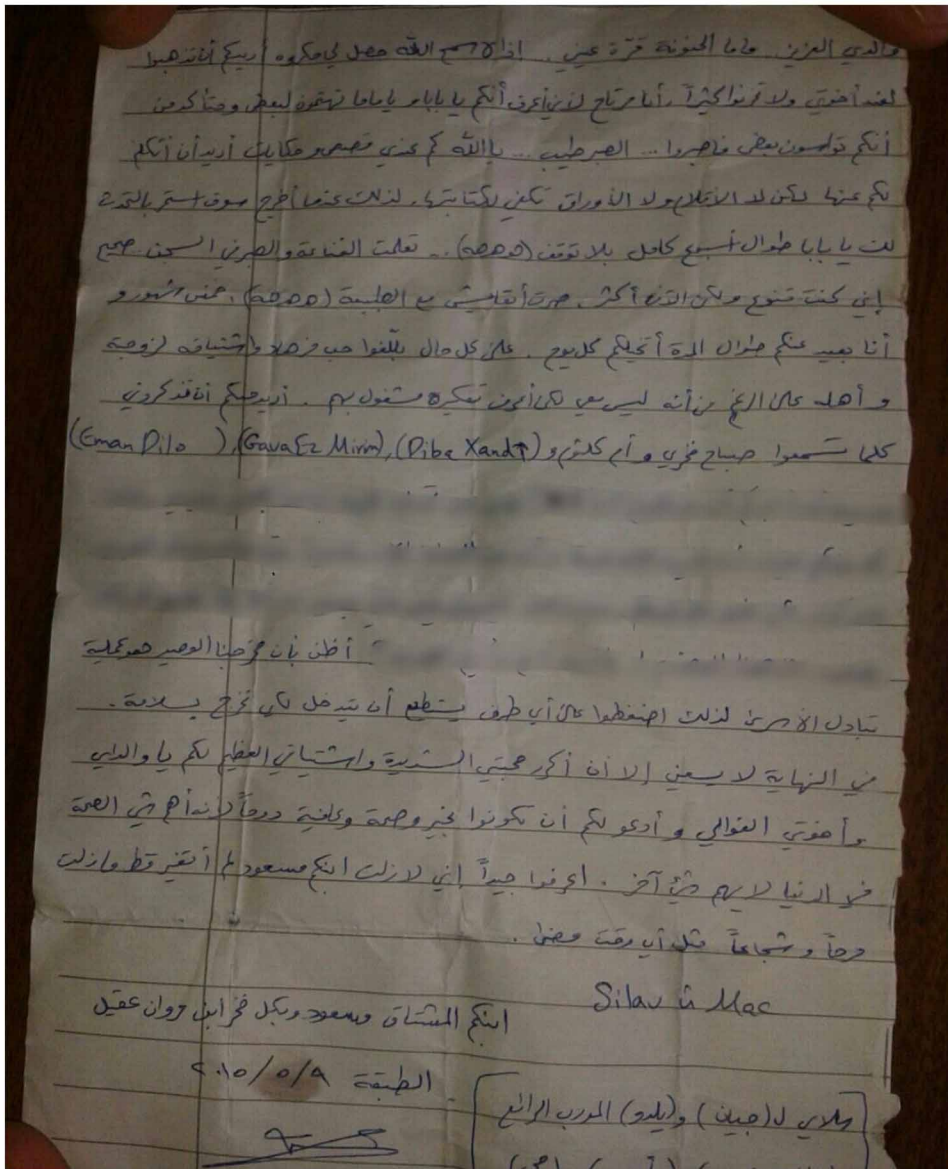 والدي العزيز .. ماما الحنونة قرة عيني .. إذا لا سمح الله حصل لي مكروه أريدكم أن تذهبوا
لعند أخوتي ولا تحزنوا كثيراً . أنا مرتاح لأني أعرف أنكم يا بابا و يا ماما تهتمون لبعض ومتأكد من
أنكم تواسون بعض فاصبروا ... الصبر طيب ... يا الله كم عندي قصص و حكايات أريد أن أتكلم
لكم عنها لكن لا الأقلام ولا الأوراق تكفي لكتابتها . لذلك عندما أخرج سوف استمر بالتحدث
لك يا بابا طوال أسبوع كامل بلا توقف (هههه) .. تعلمت القناعة والصبر في السجن . صحيح
إني كنت قنوع ولكن الآن أكثر . صرت أتقايش مع الطبيبة (هههه) . خمس شهور و
أنا بعيد عنكم طوال المدة أتخيلكم كل يوم . على كل حال بلّغوا حب فرهاد واشتياقه لزوجته
و أهله على الرغم من أنه ليس معي لكن أعرف تفكيره مشغول بهم . أريد منكم أن تذكروني
كلما تسمعوا صباح فخري و أم كلثوم و (Diba Xand), (Gava Ez Mirim), (Eman Dilo)
أظن بأن مخرجنا الوحيد هو عملية
تبادل الأسرى لذلك اضغطوا على أي طرف يستطيع أن يتدخل لكي نخرج بسلامة .
في النهاية لا يسعني إلا أن أكرر محبتي الشديدة واشتياقي العظيم لكم يا والداي
و أخوتي الغوالي و أدعو لكم أن تكونوا بخير وصحة وعافية دوماً لأنه أهم شي الصحة
في الدنيا لا يهم شيء آخر . اعرفوا جيداً إني لازلت ابنكم مسعود لم أتغير قط ومازلت
مرحاً و شجاعاً مثل أي وقت مضى .
Silav û Mac
ابنكم المشتاق مسعود وبكل فخر ابن مروان عقيل
الطبقة ٢٠١٥/٥/٩
سلامي ل (جيان) و (يلدو) المدرب الرائع